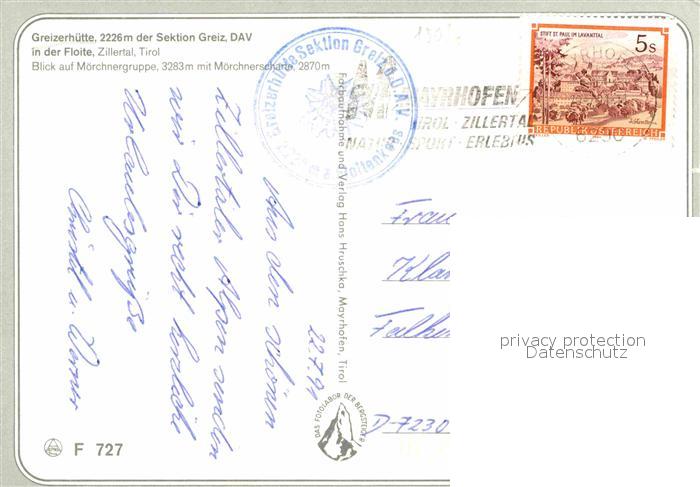 Greizerhütte, 2226m der Sektion Greiz, DAV
in der Floite, Zillertal, Tirol
Blick auf Mörchnergruppe, 3283m mit Mörchnerscharte, 2870m
Greizerhütte Sektion Greiz D.A.V.
2226 m a. Floitenkees
MAYRHOFEN
TIROL · ZILLERTAL
NATUR · SPORT · ERLEBNIS
6290
STIFT ST. PAUL IM LAVANTTAL
5s
REPUBLIK ÖSTERREICH
22.7.91
Aus den schönen
Zillertaler Alpen senden
wir Dir recht herzliche
Urlaubsgrüße
Christl u. Werner
Farbaufnahme und Verlag Hans Hruschka, Mayrhofen, Tirol
DAS FOTOLABOR DER BERGSTEIGER
Frau
D-7230
privacy protection
Datenschutz
F 727